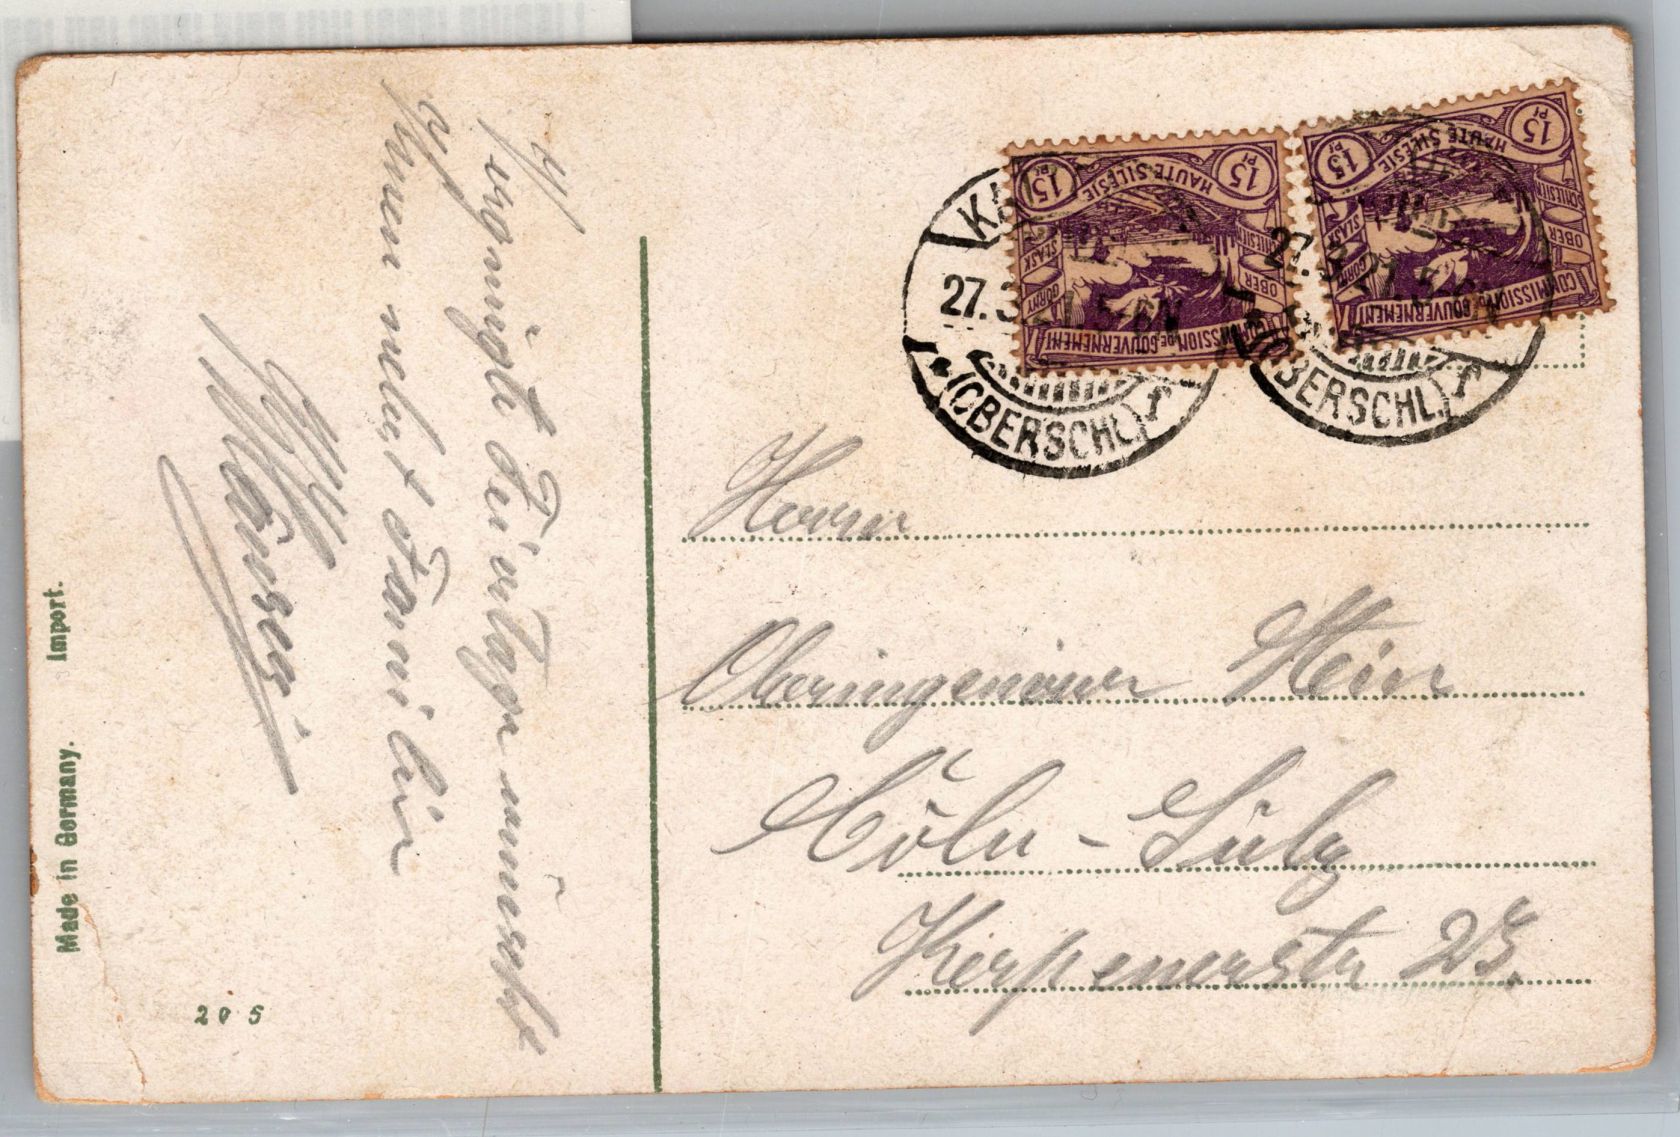 Vergnügte Feiertage wünscht
Ihnen nebst Familie
Herrn
Oberingenieur Stein
Cöln-Sülz
Kerpenerstr
Made in Germany. Import.
205
15 Pf
15 Pf
HAUTE-SILÉSIE
OBER SCHLESIEN
GÓRNY ŚLĄSK
COMMISSION DE GOUVERNEMENT
15 Pf
15 Pf
HAUTE SILÉSIE
OBER SCHLESIEN
GÓRNY ŚLĄSK
COMMISSION DE GOUVERNEMENT
27.3.21.5-6N
(OBERSCHL.) f
27.3.21.5-6N
(OBERSCHL.) f